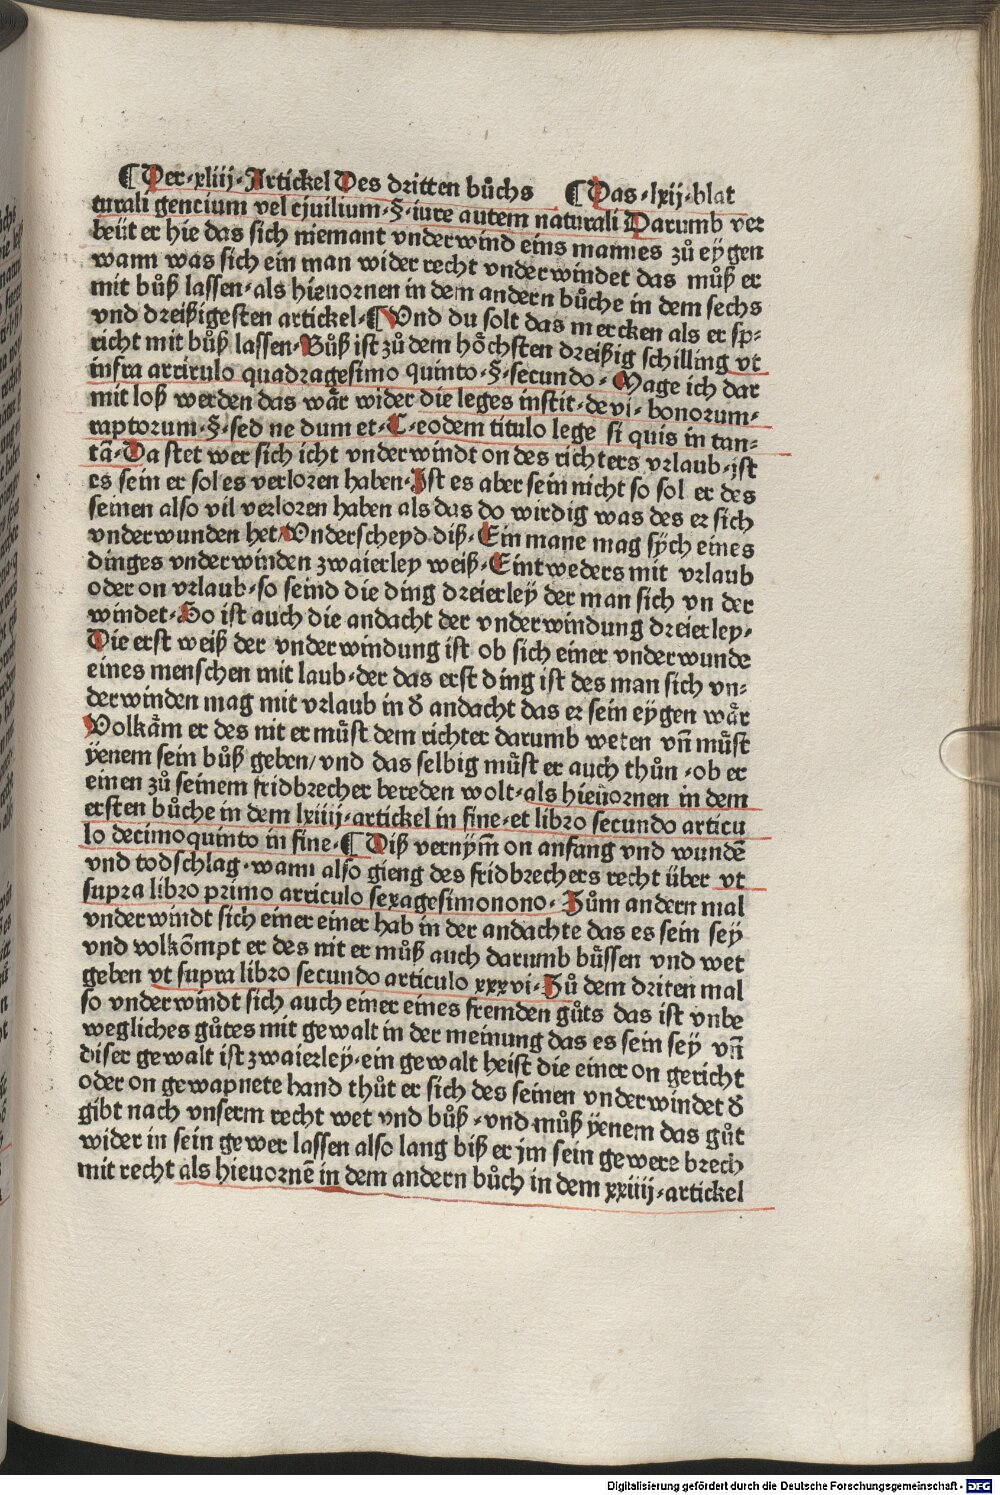 ¶ Der·xliij·Artickel Des dritten bůchs ¶ Das·lxij·blat
turali gencium vel ciuilium·§·iure autem naturali Darumb ver
beüt er hie das sich niemant vnderwind eins mannes zů eygen
wann was sich ein man wider recht vnderwindet das můß er
mit bůß lassen·als hieuornen in dem andern bůche in dem sechs
vnd dreißigesten artickel·¶ Vnd du solt das mercken als er sp⸗
richt mit bůß lassen·Bůß ist zů dem hőchsten dreißig schilling vt
infra articulo quadragesimo quinto·§·secundo· Mage ich dar
mit loß werden das wår wider die leges instit·de vi· bonorum⸗
raptorum·§·sed ne dum et·C·eodem titulo lege si quis in tan⸗
tā·Da stet wer sich icht vnderwindt on des richters vrlaub·ist
es sein er sol es verloren haben·Ist es aber sein nicht so sol er des
seinen also vil verloren haben als das do wirdig was des er sich
vnderwunden het Vnderscheyd diß·Ein mane mag sÿch eines
dinges vnderwinden zwaierley weiß·Eintweders mit vrlaub
oder on vrlaub·so seind die ding dreierleÿ der man sich vn der
windet·So ist auch die andacht der vnderwindung dreierley·
Die erst weiß der vnderwindung ist ob sich einer vnderwunde
eines menschen mit laub·der das erst ding ist des man sich vn⸗
derwinden mag mit vrlaub in d̄ andacht das er sein eÿgen wår
Volkåm er des nit er můst dem richter darumb weten vn̄ můst
ÿenem sein bůß geben/vnd das selbig můst er auch thůn·ob er
einen zů seinem fridbrecher bereden wolt·als hieuornen in dem
ersten bůche in dem lxiiij·artickel in fine·et libro secundo articu
lo decimoquinto in fine·¶ Diß vernym̄ on anfang vnd wundē
vnd todschlag·wann also gieng des fridbrechers recht über vt
supra libro primo articulo sexagesimonono· Zům andern mal
vnderwindt sich einer einer hab in der andachte das es sein seÿ
vnd volkōmpt er des nit er můß auch darumb bůssen vnd wet
geben vt supra libro secundo articulo xxxvi·Zů dem driten mal
so vnderwindt sich auch einer eines fremden gůts das ist vnbe
wegliches gůtes mit gewalt in der meinung das es sein seÿ vn̄
diser gewalt ist zwaierley·ein gewalt heist die einer on gericht
oder on gewapnete hand thůt er sich des seinen vnderwindet d̄
gibt nach vnserm recht wet vnd bůß·vnd můß ÿenem das gůt
wider in sein gewer lassen also lang biß er jm sein gewere brech
mit recht als hieuornē in dem andern bůch in dem xxiiij·artickel
Digitalisierung gefördert durch die Deutsche Forschungsgemeinschaft - DFG